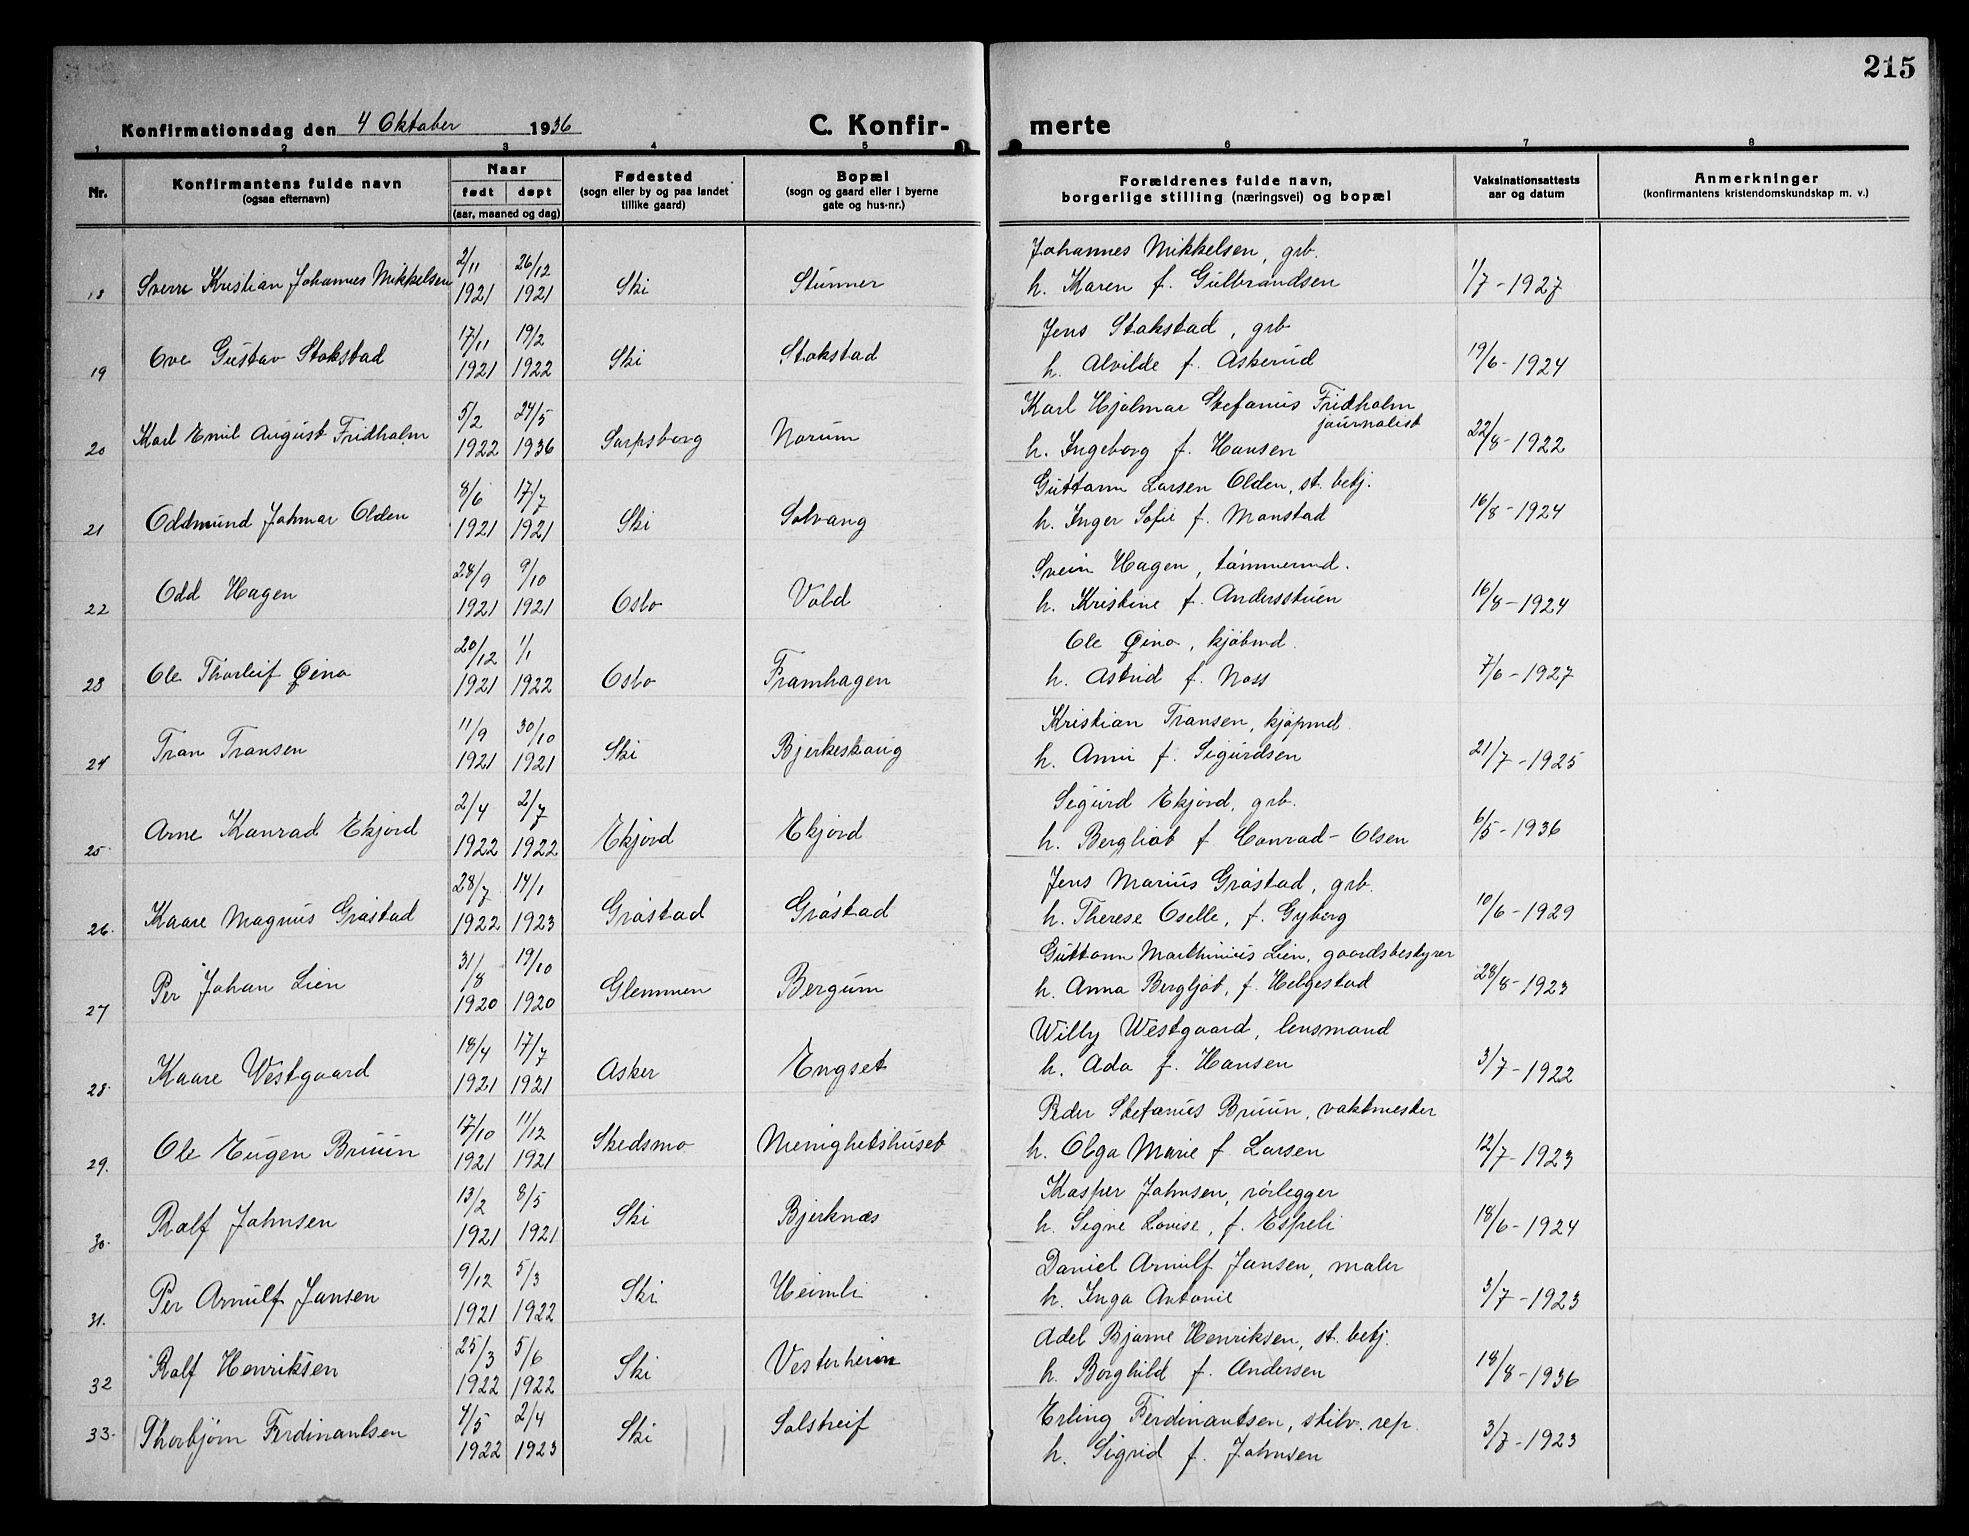 215
Konfirmationsdag den 4 Oktober 1936 C. Konfir- merte
1 2 3 4 5 6 7 8
Nr. Konfirmantens fulde navn (ogsaa efternavn) Naar født døpt (aar, maaned og dag) Fødested (sogn eller by og paa landet tillike gaard) Bopæl (sogn og gaard eller i byerne gate og hus-nr.) Forældrenes fulde navn, borgerlige stilling (næringsvei) og bopæl Vaksinationsattests aar og datum Anmerkninger (konfirmantens kristendomskundskap m. v.)
2/11 26/12 Johannes Mikkelsen, grb.
18 Sverre Kristian Johannes Mikkelsen 1921 1921 Ski Stunner h. Karen f. Gulbrandsen 1/7-1927
17/11 19/2 Jens Stokstad, grb
19 Ove Gustav Stokstad 1921 1922 Ski Stokstad h. Alvilde f. Askerud 19/6-1924
5/2 24/5 Karl Hjalmar Stefanus Fridholm
journalist
20 Karl Emil August Fridholm 1922 1936 Sarpsborg Norum h. Ingeborg f. Hansen 22/8-1922
8/6 17/7 Guttorm Larsen Olden, st. betj.
21 Oddmund Jahmar Olden 1921 1921 Ski Solvang h. Inger Sofie f. Monstad 16/8-1924
28/9 9/10 Svein Hagen, tømmermd.
22 Odd Hagen 1921 1921 Oslo Vold h. Kristine f. Andersstuen 16/8-1924
20/12 1/1 Ole Qino, kjøbmd.
23 Ole Thorleif Qino 1921 1922 Oslo Framhagen h. Astrid f. Noss 7/6-1927
11/9 30/10 Kristian Transen, kjøpmd.
24 Tran Transen 1921 1921 Ski Bjerkeskoug h. Anni f. Sigurdsen 21/7-1925
2/4 2/7 Sigurd Ekjord, grb.
25 Arne Konrad Ekjord 1922 1922 Ekjord Ekjord h. Bergliot f Conrad-Olsen 6/5-1936
28/7 14/1 Jens Marius Gråstad, grb.
26. Kaare Magnus Gråstad 1922 1923 Gråstad Gråstad h. Therese Oselle, f. Gyberg 10/6-1929
31/8 19/10 Guttorm Marthinius Lien, gaardsbestyrer
27 Per Johan Lien 1920 1920 Glemmen Bergum h. Anna Bergljot, f. Helgestad 28/8-1923
18/4 17/7 Willy Westgaard, lensmand
28. Kaare Westgaard 1921 1921 Asker Engset h. Ada f. Hansen 3/7-1922
17/10 11/12 Peder Stefanus Bruun, vaktmester
29. Ole Eugen Bruun 1921 1921 Skedsmo Menighetshuset h. Olga Marie f Larsen 12/7-1923
13/2 8/5 Kasper Johnsen, rørlegger
30. Ralf Johnsen 1921 1921 Ski Bjerknæs h. Signe Lovise, f. Espeli 18/6-1924
9/12 5/3 Daniel Arnulf Jansen, maler
31. Per Arnulf Jansen 1921 1922 Ski Heimli h. Inga Antonie 3/7-1923
25/3 5/6 Adel Bjarne Henriksen, st. betj.
32 Ralf Henriksen 1922 1922 Ski Vesterheim h. Borghild f. Andersen 18/8-1936
4/5 2/4 Erling Ferdinantsen, stilv. rep.
33. Thorbjørn Ferdinantsen 1922 1923 Ski Solstreif h. Sigrid f. Johnsen 3/7-1923